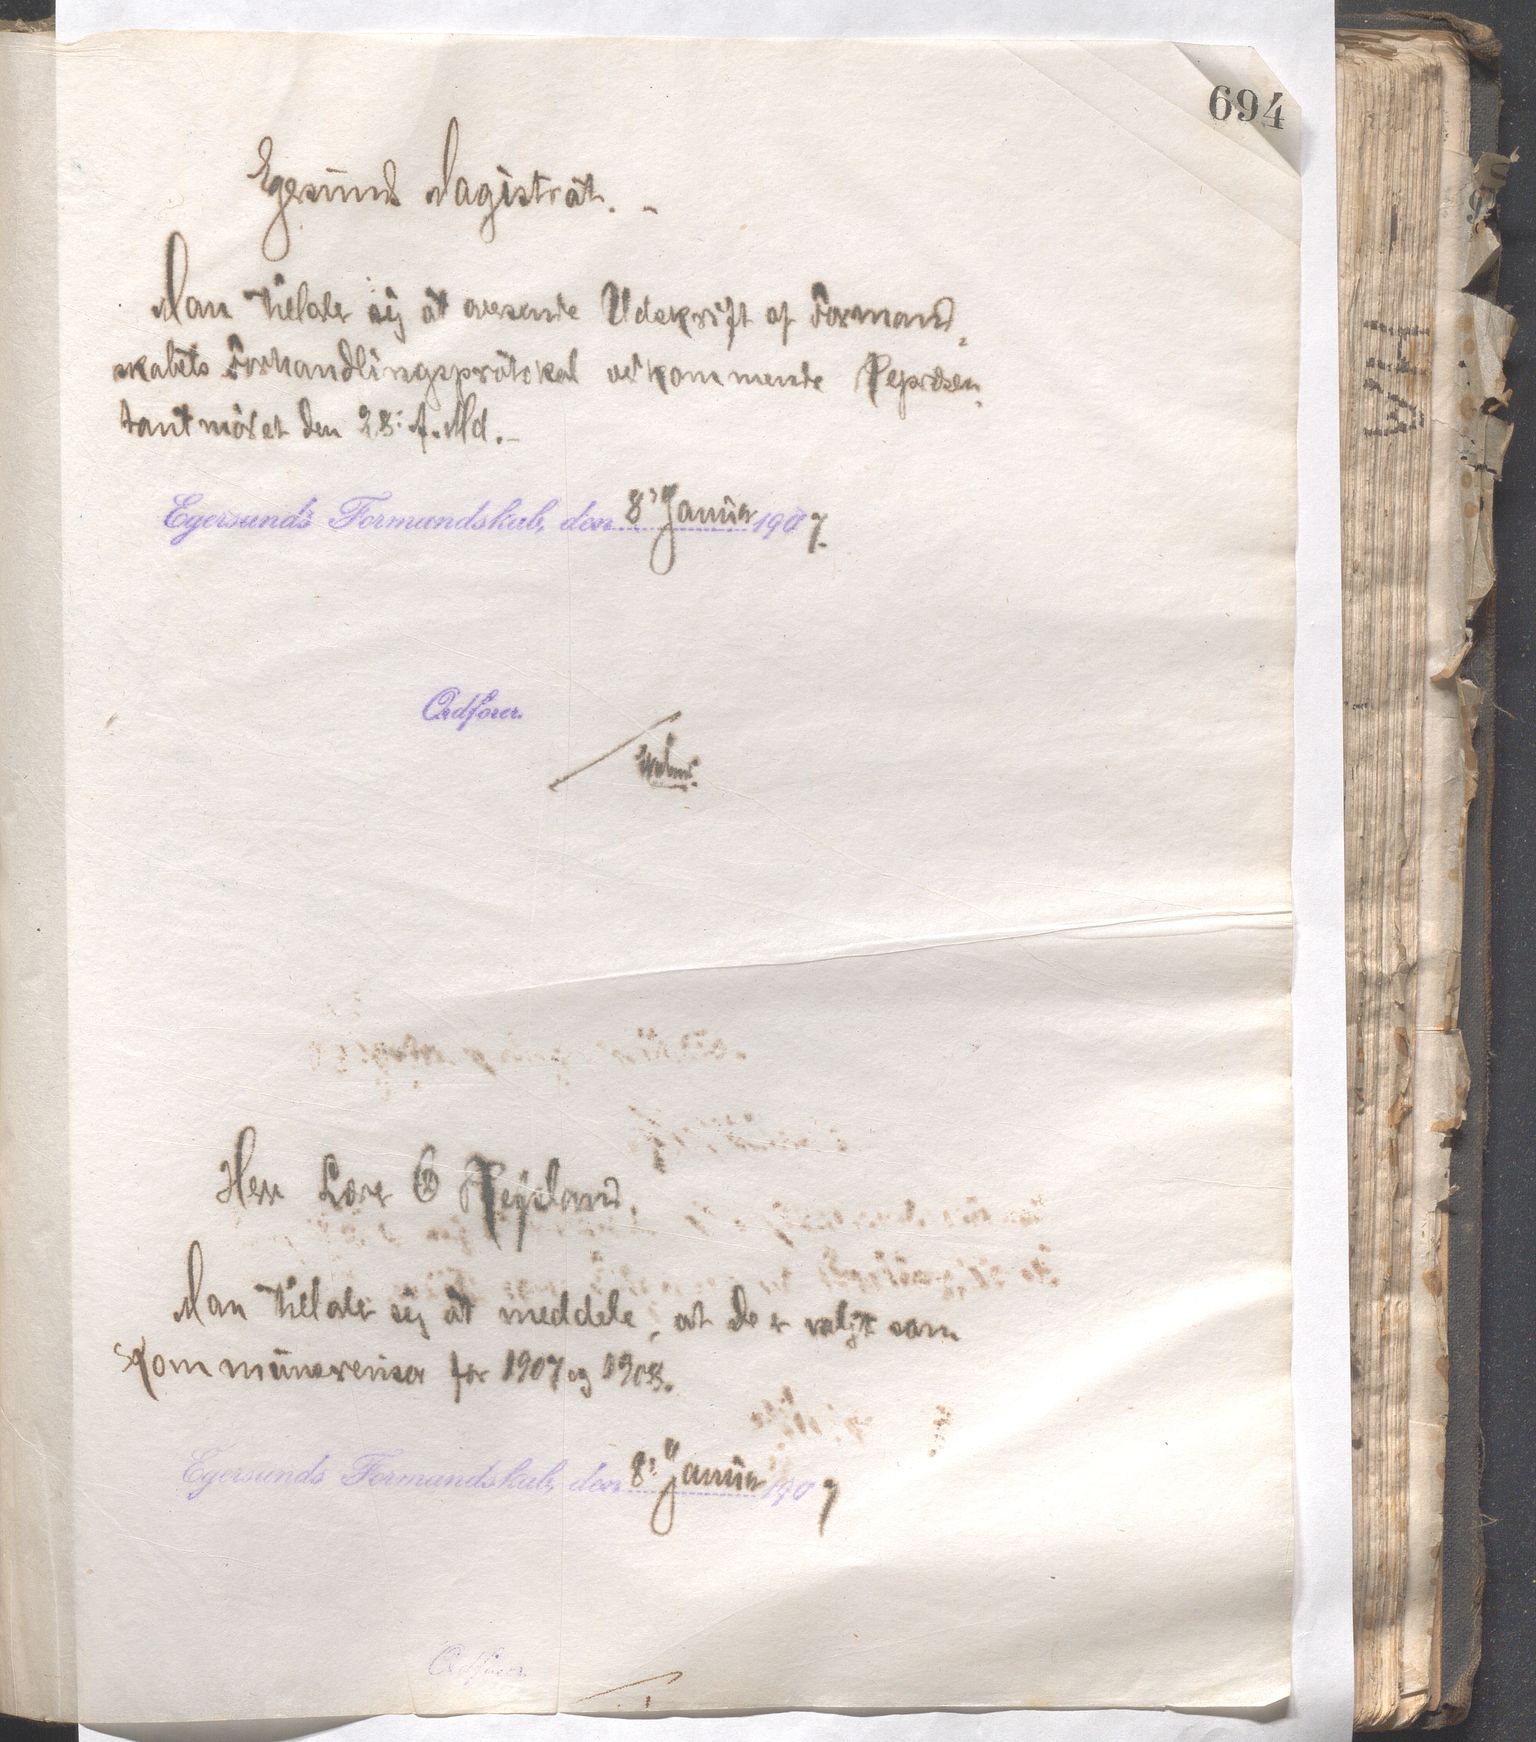 694
Egersund Magistrat. -
Man tillader sig at oversende Udskrift af Formand-
skabets Forhandlingsprotokol vedkommende Repræsen-
tantmödet den 28: f. Md. -
Egersunds Formandskab, den 8' Januar 1907.
Ordfører.
Herr Lærer O Repsland.
Man tillader sig at meddele, at De er valgt som
Kommunerevisor for 1907 og 1908.
Egersunds Formandskab, den 8' Januar 1907
Ordfører.